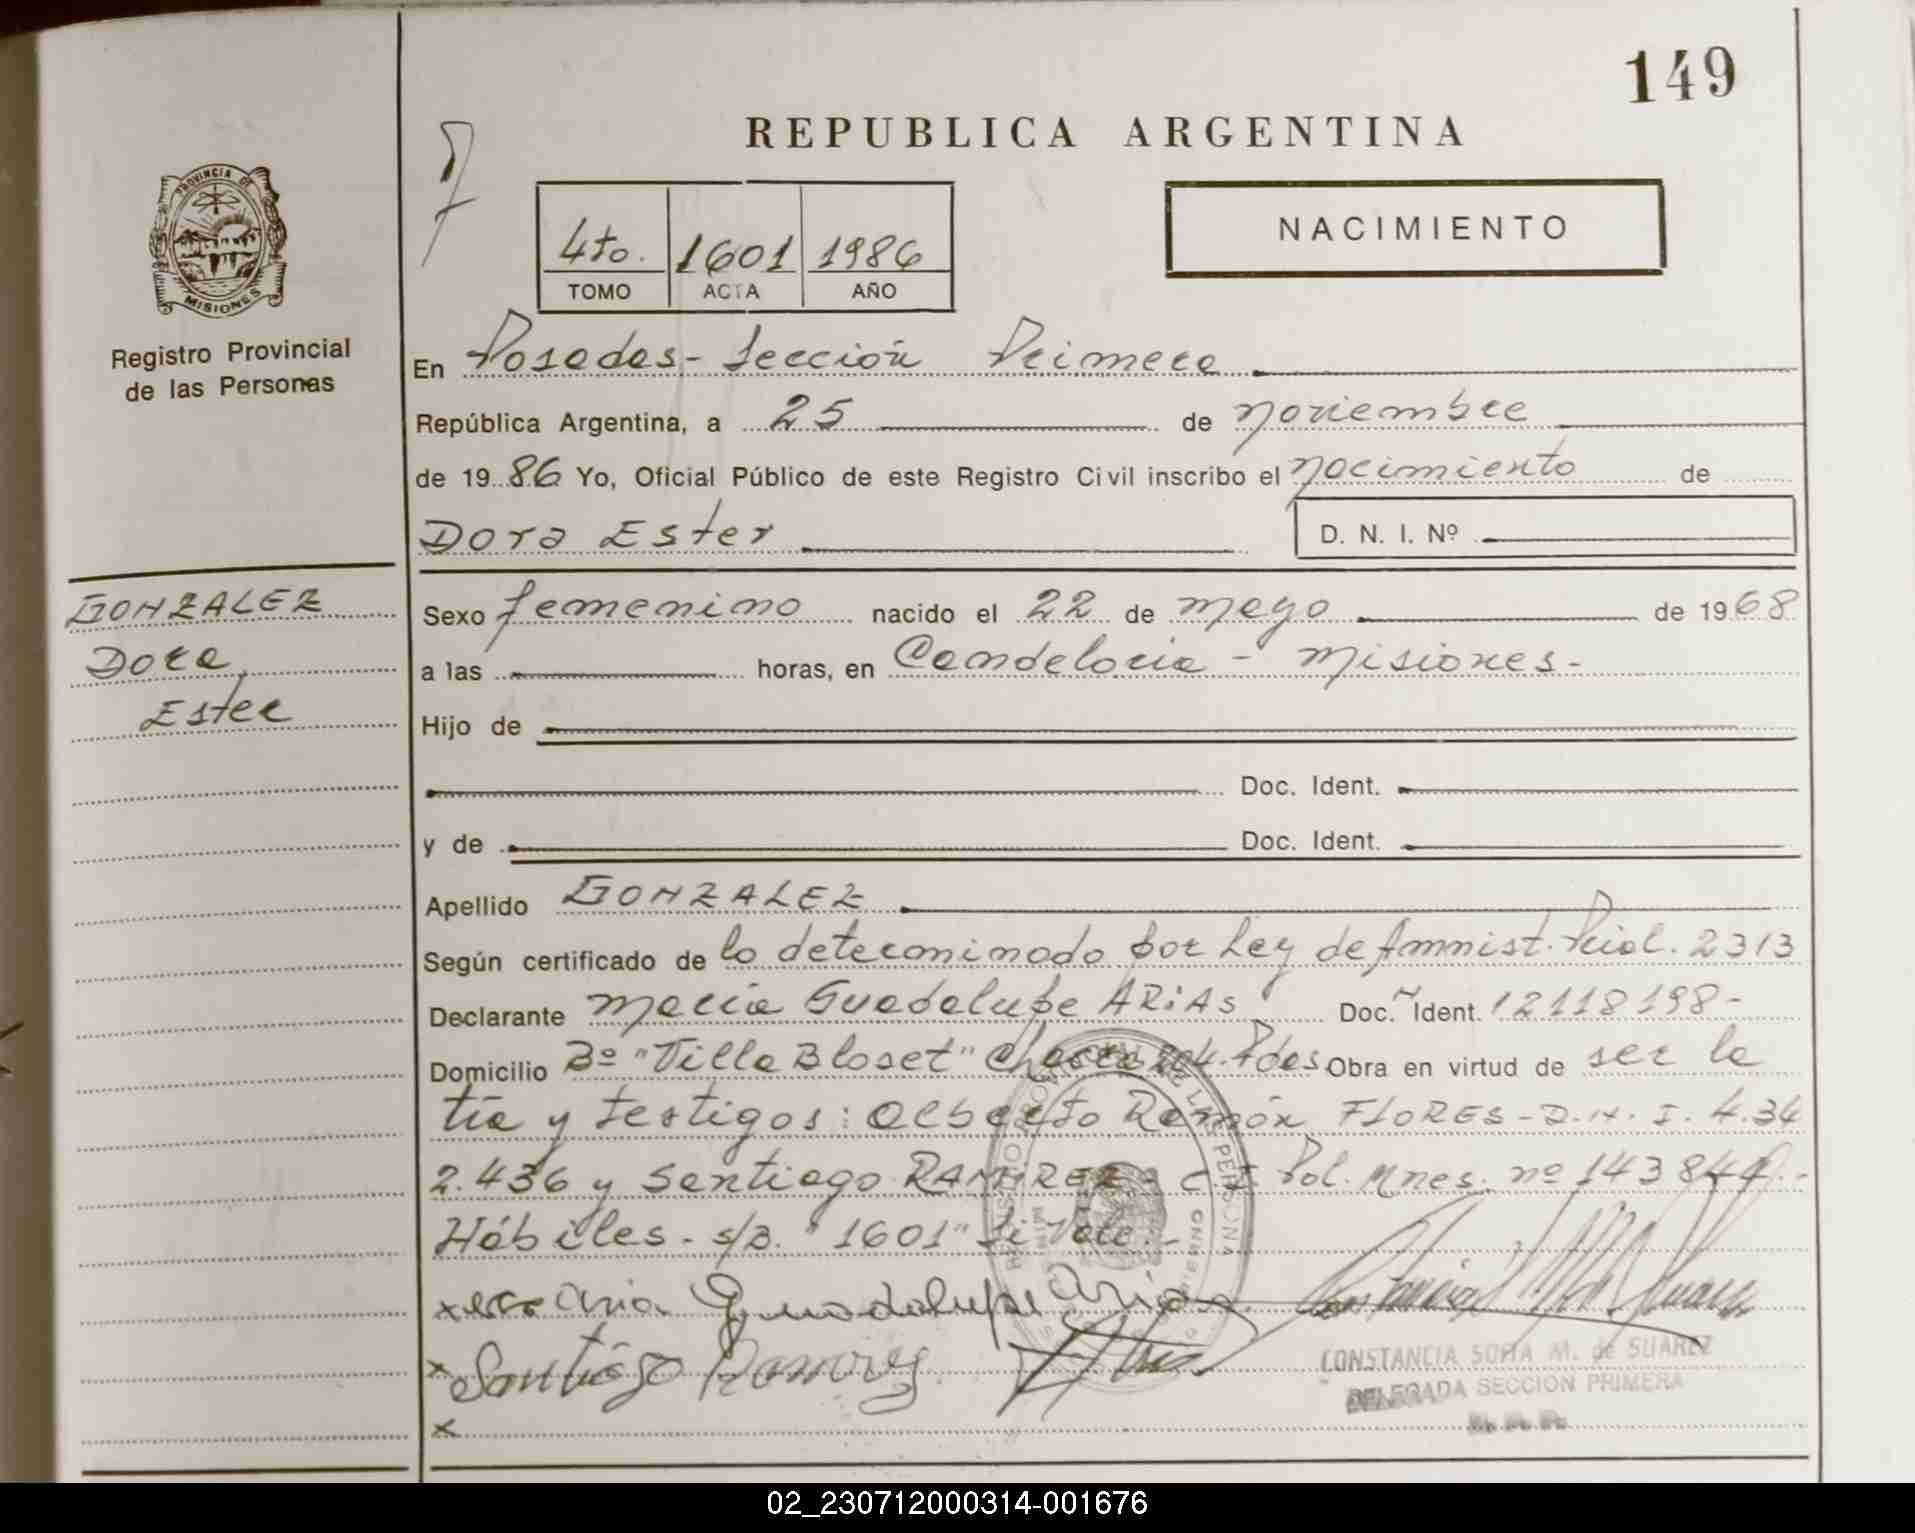 149
REPUBLICA ARGENTINA
PROVINCIA DE
MISIONES
Registro Provincial
de las Personas
4to. 1601 1986
TOMO ACTA AÑO
NACIMIENTO
En Posadas - Sección Primera
República Argentina, a 25 de noviembre
de 1986 Yo, Oficial Público de este Registro Civil inscribo el nacimiento de
Dora Ester D. N. I. Nº
GONZALEZ
Dora
Ester
Sexo femenino nacido el 22 de mayo de 1968
a las horas, en Candelaria - Misiones-
Hijo de
Doc. Ident.
y de Doc. Ident.
Apellido GONZALEZ
Según certificado de lo determinado por Ley de Amnist. Pcial. 2313
Declarante María Guadalupe ARIAS Doc. Ident. 12118198-
Domicilio Bº "Villa Bloset" Chacra 204. Pdas. Obra en virtud de ser la
tía y testigos: Alberto Ramón FLORES - D.N.I. 4.34
2.436 y Santiago RAMIREZ - C.I. Pol. Mnes. nº 143844.-
Hábiles - s/B. "1601" Si Vale.-
x Maria Guadalupe Arias
x Santiago Ramirez
x
CONSTANCIA SOFIA M. de SUAREZ
DELEGADA SECCION PRIMERA
02_230712000314-001676